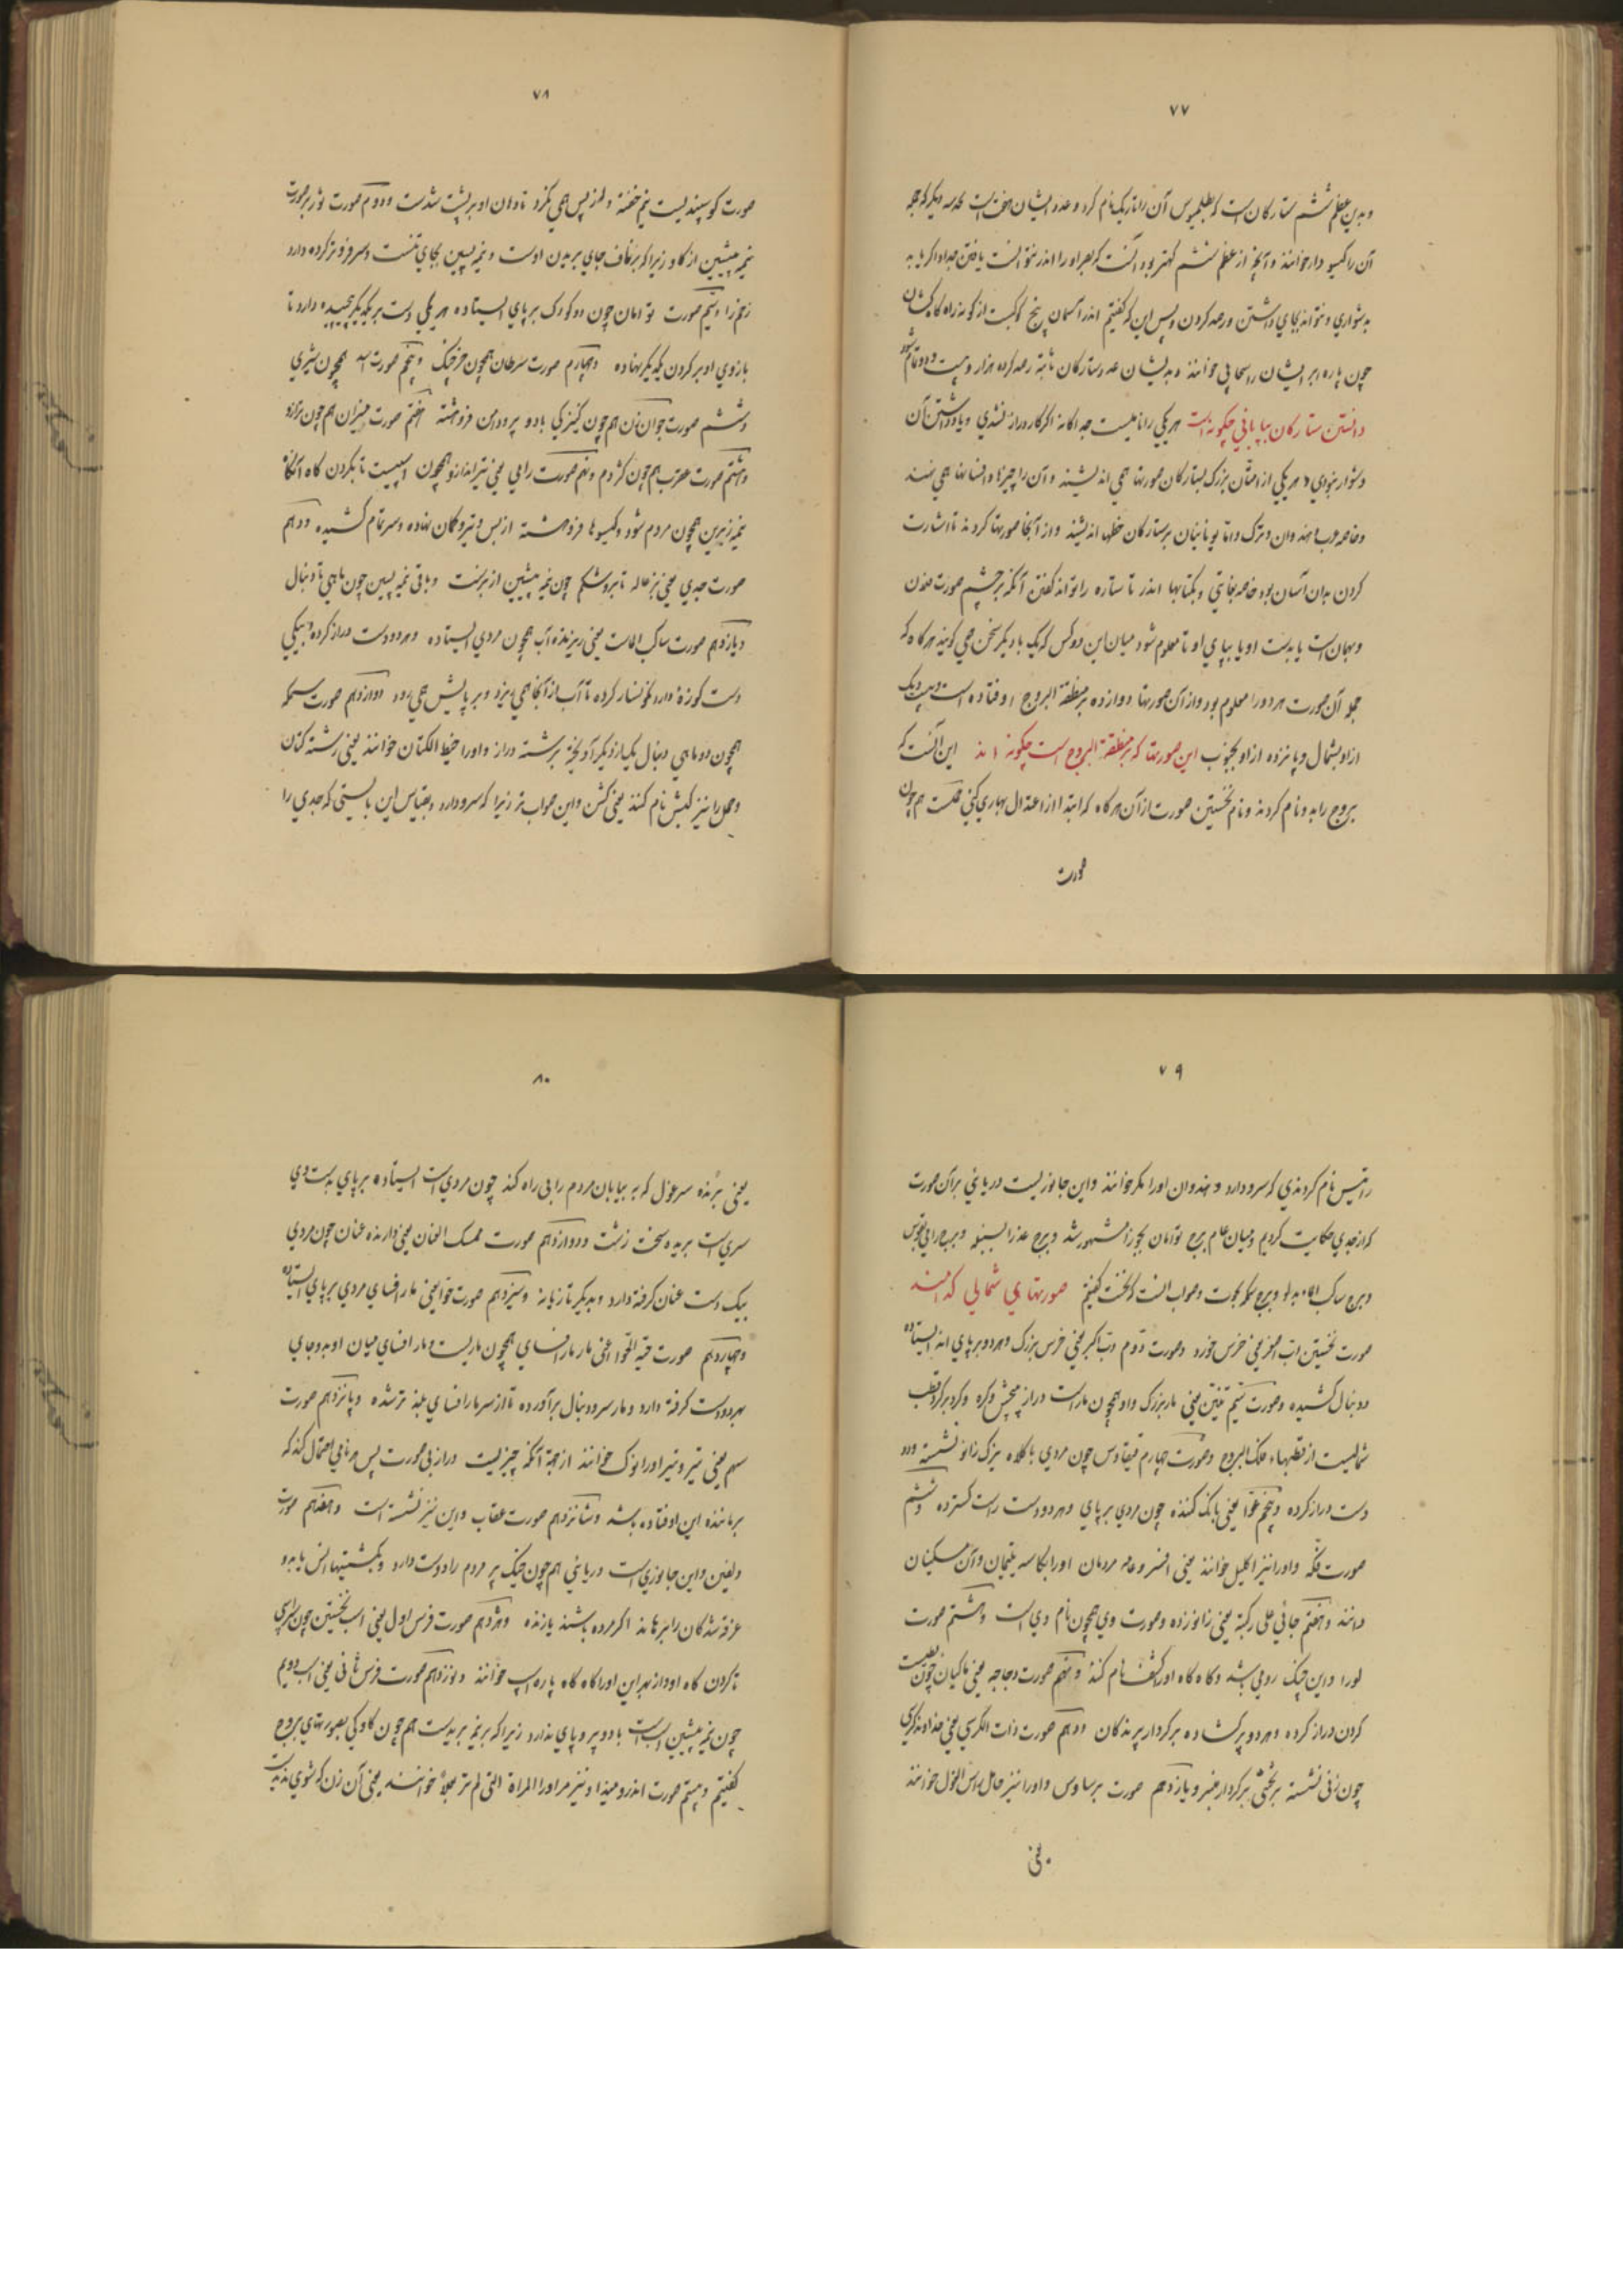 ۷۷
و بدین عظم ششم ستارگان است که بطلمیوس آن را تاریک نام کرد و عدد ایشان هفت است بجز سه دیگر که جمله
آن را گیسودار خوانند و آنچ از عظم ششم کهتر بود آنست که بصر او را اندر نتوانست یافتن جداد اگر یابد
بدشواری و نتواند بجای داشتن و رصد کردن و پس این که گفتیم اندر آسمان پنج کوکبست از گونه راه کاهکشان
چون پاره ابر ایشان را سحابی خوانند و بدیشان عدد ستارگان ثابته رصد کرده هزار و بیست و دو تمام شود
دانستن ستارگان بیابانی چگونه است هر یکی را نامیست جداگانه اگر کار دراز نشدی و یاد داشتن آن
دشوار نبودی و هر یکی از امتان بزرگ بستارگان صورتها همی اندیشند و آن را چیزها و افسانها همی نهند
و خاصه عرب و هندوان و ترک و اما یونانیان بر ستارگان خطها اندیشند و از آنجا صورتها کردند تا اشارت
کردن بدان آسان بود خاصه بغایتی و بکتابها اندر تا ستاره را تواند گفتن آنکه بر چشم صورت فلان
و بهمان است یا بدست او یا بپای او تا معلوم شود میان این دو کس که یک با دیگر سخن همی گویند هرگاه که
جملهٔ آن صورت هر دو را معلوم بود و از آن صورتها دوازده بر منطقة البروج اوفتاده است و بیست و یک
از او بشمال و پانزده از او بجنوب این صورتها که بر منطقة البروج است چگونه اند این آنست که
بروج را بدو نام کردند و نام نخستین صورت از آن هرگاه که ابتدا از اعتدال بهاری کنی حملست هم چون
صورت
۷۸
صورت گوسپندیست نیم خفته و از پس همی نگرد تا دهان او بر پشت شدست و دوم صورت ثور بر صورت
نیمه پیشین از گاو زیرا که بر ناف جای بریدن اوست و نیمه پسین بجای نیست و سر فروتر کرده دارد
زخم را و سیم صورت توامان چون دو کودک بر پای ایستاده هر یکی دست بر یکدیگر پیچیده دارد تا
بازوی او بر گردن یکدیگر نهاده و چهارم صورت سرطان همچون خرچنگ و پنجم صورت اسد همچون شیری
و ششم صورت جوان زن هم چون کنیزکی با دو پر و دامن فروهشته هفتم صورت میزان هم چون ترازو
و هشتم صورت عقرب هم چون کژدم و نهم صورت رامی یعنی تیرانداز و همچون اسپیست تا بگردن گاه آنگاه
نیمه زیرین همچون مردم شود و گیسوها فروهشته از پس و تیر و کمان نهاده و سر تمام کشیده و دهم
صورت جدی یعنی بزغاله تا بر و شکم چون نیمه پیشین از بزست و باقی نیمه پسین چون ماهی تا دنبال
و یازدهم صورت ساکب الماست یعنی ریزنده آب همچون مردی ایستاده و هر دو دست دراز کرده و بیکی
دست کوزهٔ دارد نگونسار کرده تا آب از آنجا همی ریزد و بر پایش همی رود دوازدهم صورت سمکه
همچون دو ماهی دنبال یکی از دیگر آویخته برشته دراز و او را خیط الکتان خوانند یعنی رشته کتان
و حمل را نیز کبش نام کنند یعنی گشن و این صواب تر زیرا که سرو دارد و بقیاس این بایستی که جدی را
۷۹
را تیس نام کردندی که سرو دارد و هندوان او را مکر خوانند و این جانوریست دریایی بر آن صورت
که از جدی حکایت کردیم و میان عام برج توامان بجوزا مشهور شد و برج عذرا بسنبله و برج رامی بقوس
و برج ساکب الماء بدلو و برج سمکه بحوت و صواب آنست که نخست گفتیم صورتهای شمالی کدامند
صورت نخستین دب اصغر یعنی خرس خرد و صورت دوم دب اکبر یعنی خرس بزرگ و هر دو بر پای اند ایستاده
و دنبال کشیده و صورت سیم تنین یعنی مار بزرگ و او همچون مار است دراز پیچش و گره و گرد بر گرد قطب
شمالیست از قطبهاء فلک البروج و صورت چهارم قیقاوس چون مردی با کلاه بزرگ زانو نشسته و دو
دست دراز کرده و پنجم عوّا یعنی بانگ کننده چون مردی بر پای و هر دو دست راست گسترده و ششم
صورت فکه و او را نیز اکلیل خوانند یعنی افسر و عامه مردمان او را کاسه یتیمان و آن مسکینان
دانند و هفتم جاثی علی رکبته یعنی زانو زده و صورت وی همچون نام وی است و هشتم صورت
لورا و این چنگ رومی بشد و گاه گاه او را کشف نام کنند و نهم صورت دجاجه یعنی ماکیان چون بطیست
گردن دراز کرده و هر دو پر گشاده بر کردار پرندگان و دهم صورت ذات الکرسی یعنی خداوند کرسی
چون زنی نشسته بر تختی بر کردار منبر و یازدهم صورت برساوس و او را نیز حامل راس الغول خوانند
یعنی
۸۰
یعنی برنده سر غول که به بیابان مردم را بی راه کند چون مردی است ایستاده بر پای بدست وی
سری است بریده سخت زشت و دوازدهم صورت ممسک العنان یعنی دارنده عنان چون مردی
بیک دست عنان گرفته دارد و بدیگر تازیانه و سیزدهم صورت حوا یعنی مار افسای مردی بر پای ایستاده
و چهاردهم صورت حیة الحوا یعنی مار مار افسای همچون ماریست و مار افسای میان او بدو جای
بهر دو دست گرفته دارد و مار سر و دنبال برآورده تا از سر مار افسای بلندتر شده و پانزدهم صورت
سهم یعنی تیر و تیر او را نوک خوانند از جهة آنکه چیزیست دراز بی صورت پس هر نامی احتمال کند که
بر ماننده این اوفتاده بشد و شانزدهم صورت عقاب و این نیز نشسته است و هفدهم صورت
دلفین و این جانوری است دریایی هم چون خیک پر مردم را دوست دارد و بکشتیها انس یابد و
غرقه شدگان را برهاند اگر مرده باشند یا زنده و هژدهم صورت فرس اول یعنی اسب نخستین چون سر اسپی
تا گردن گاه او و از بهر این او را گاه گاه پاره اسپ خوانند و نوزدهم صورت فرس ثانی یعنی اسب دویم
چون نیمه پیشین اسب است با دو پر و پای ندارد زیرا که بر نیمه بریدست هم چون گاوکی بصورتهای بروج
گفتیم و بیستم صورت اندرومیذا و نیز مر او را المراة التی لم تر بعلاً خوانند یعنی آن زن که شوی ندیدست